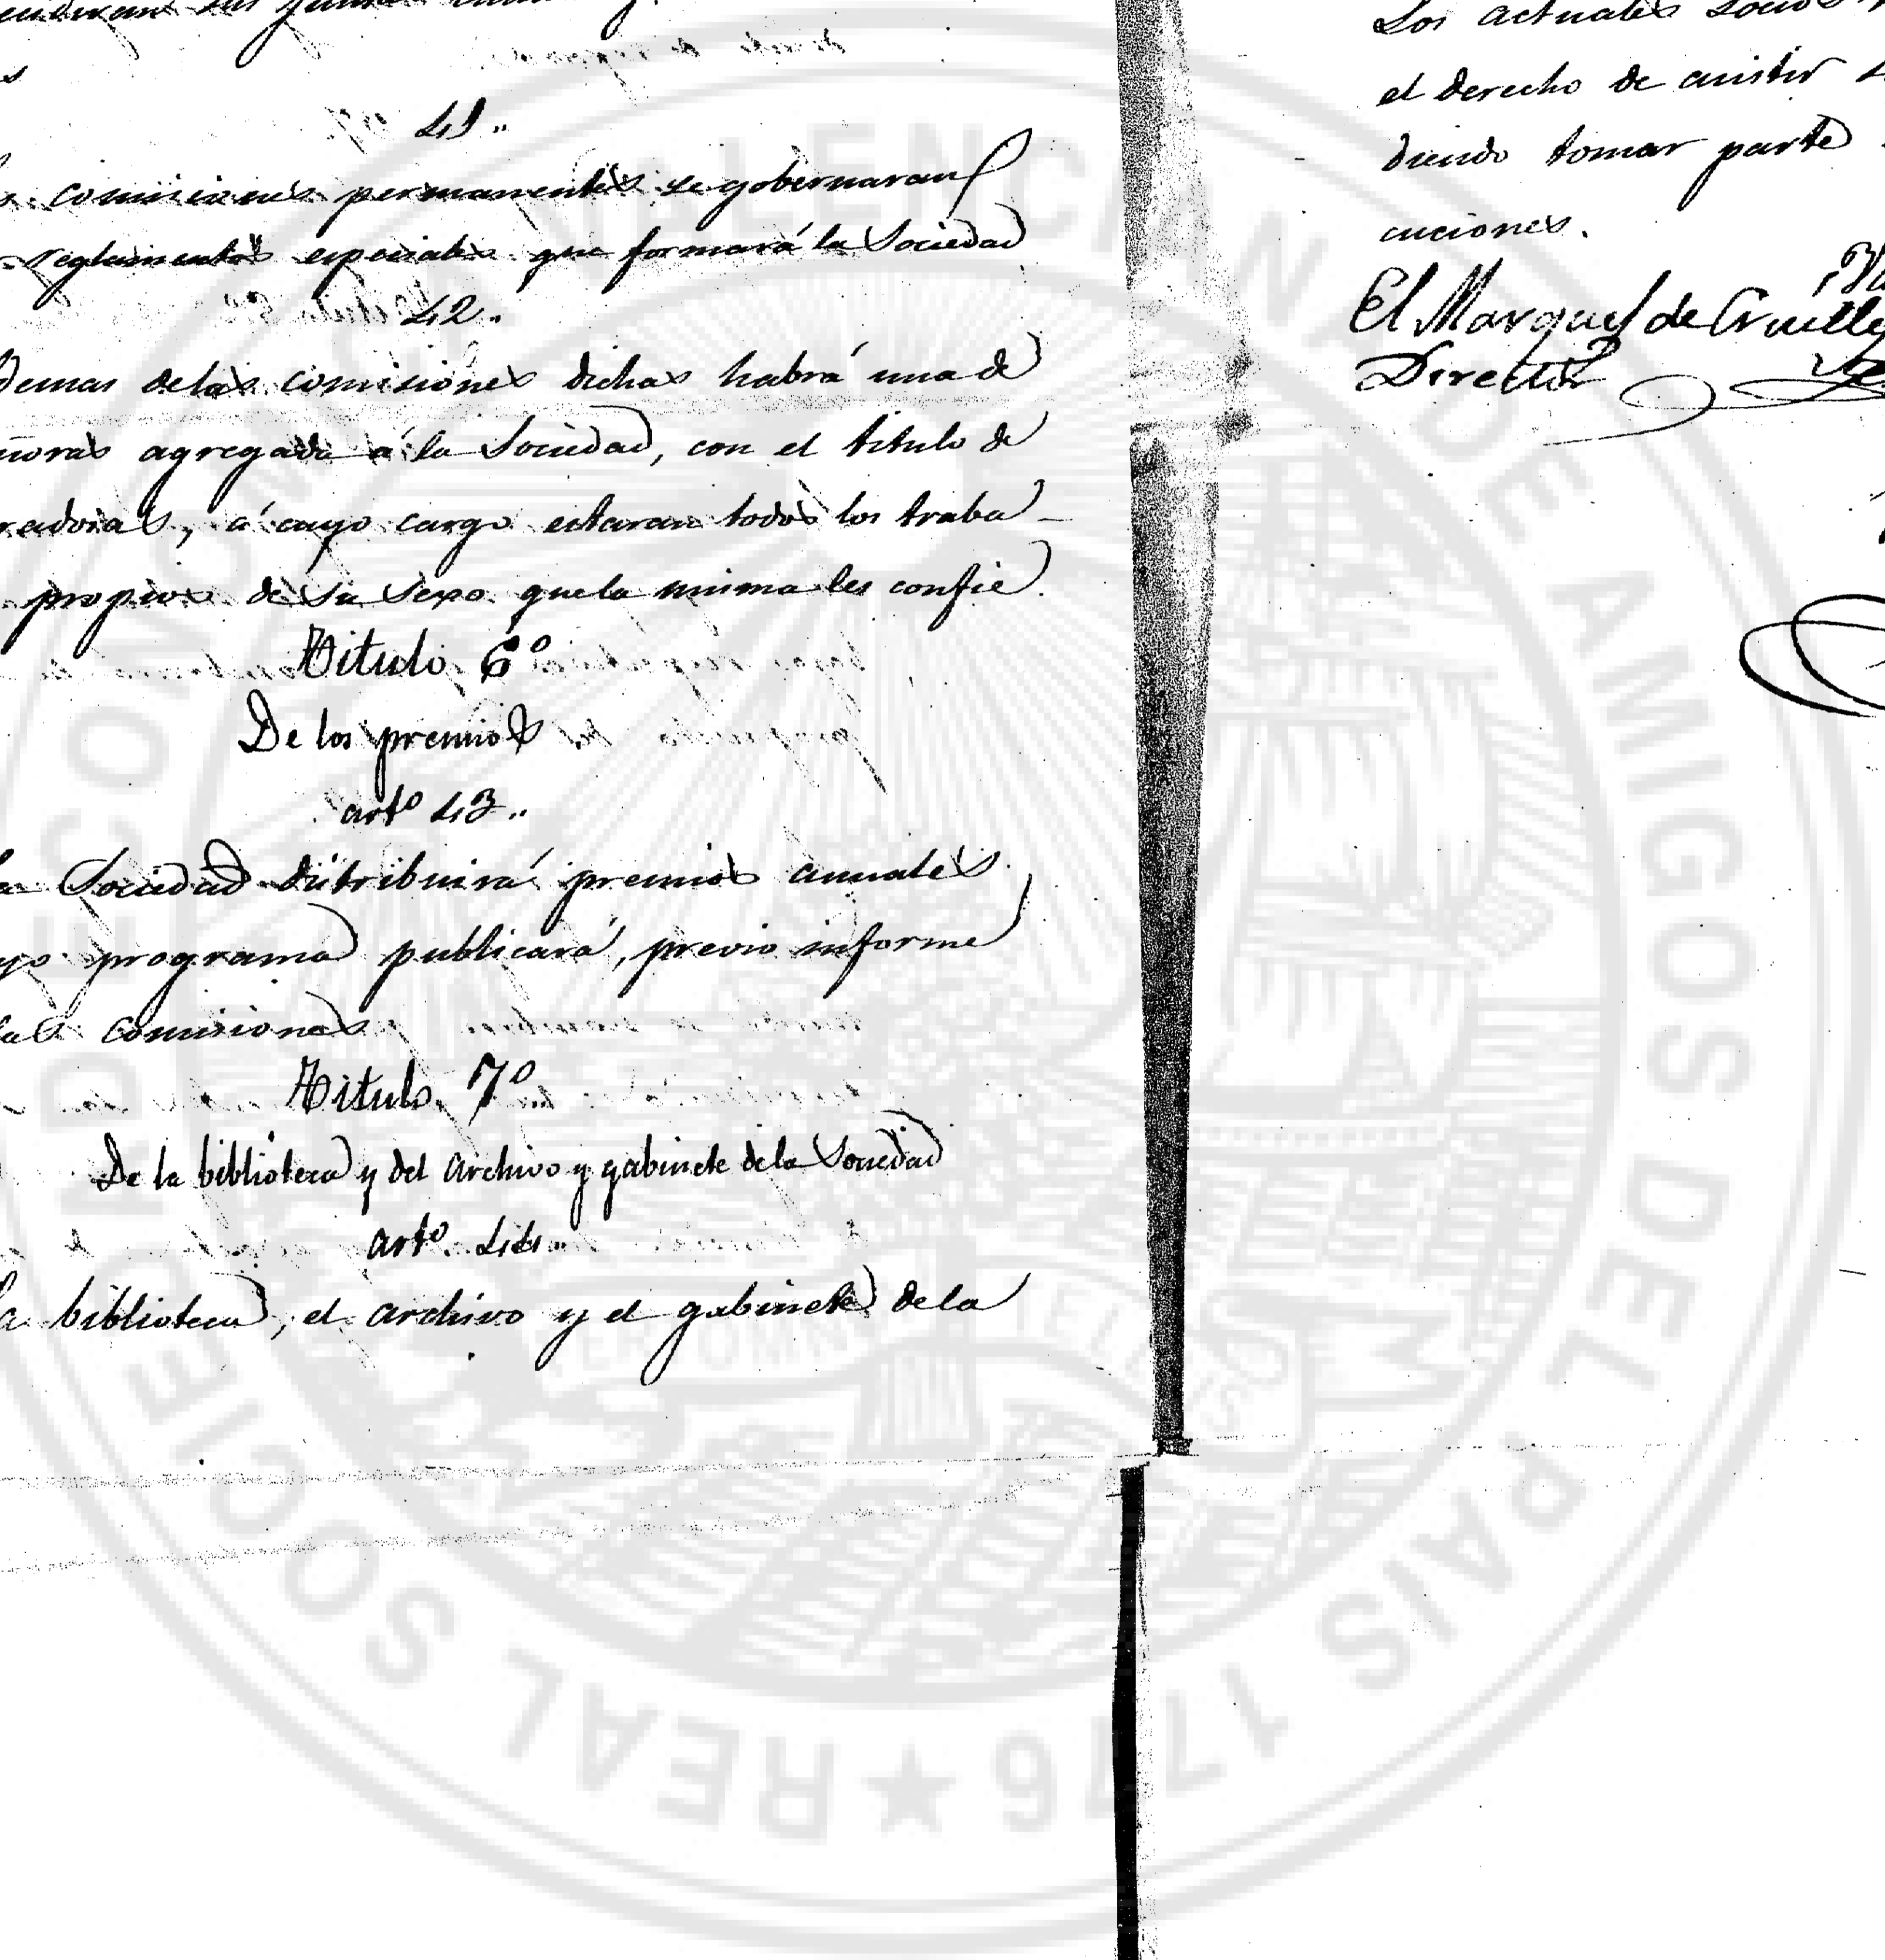 41..
comisiones permanentes se gobernaran
reglamentos especiales que formará la Sociedad
42.
demas de las comisiones dichas habrá una de
ñoras agregada á la Sociedad, con el titulo de
radoras, á cuyo cargo estaran todos los traba-
propios de su sexo que la misma les confie.
Titulo 6º
De los premios
artº 43..
a Sociedad distribuirá premios anuales
yo programa publicará, previo informe
las comisiones
Titulo 7º
De la biblioteca y del archivo y gabinete de la Sociedad
artº 44..
a biblioteca, el archivo y el gabinete de la
Los actuales socios
el derecho de asistir
diendo tomar parte
cuciones.
El Marques de Cruille
Director
REAL SOCIE DE ECON VALENCIANA DE AMIGOS DEL PAIS 1776